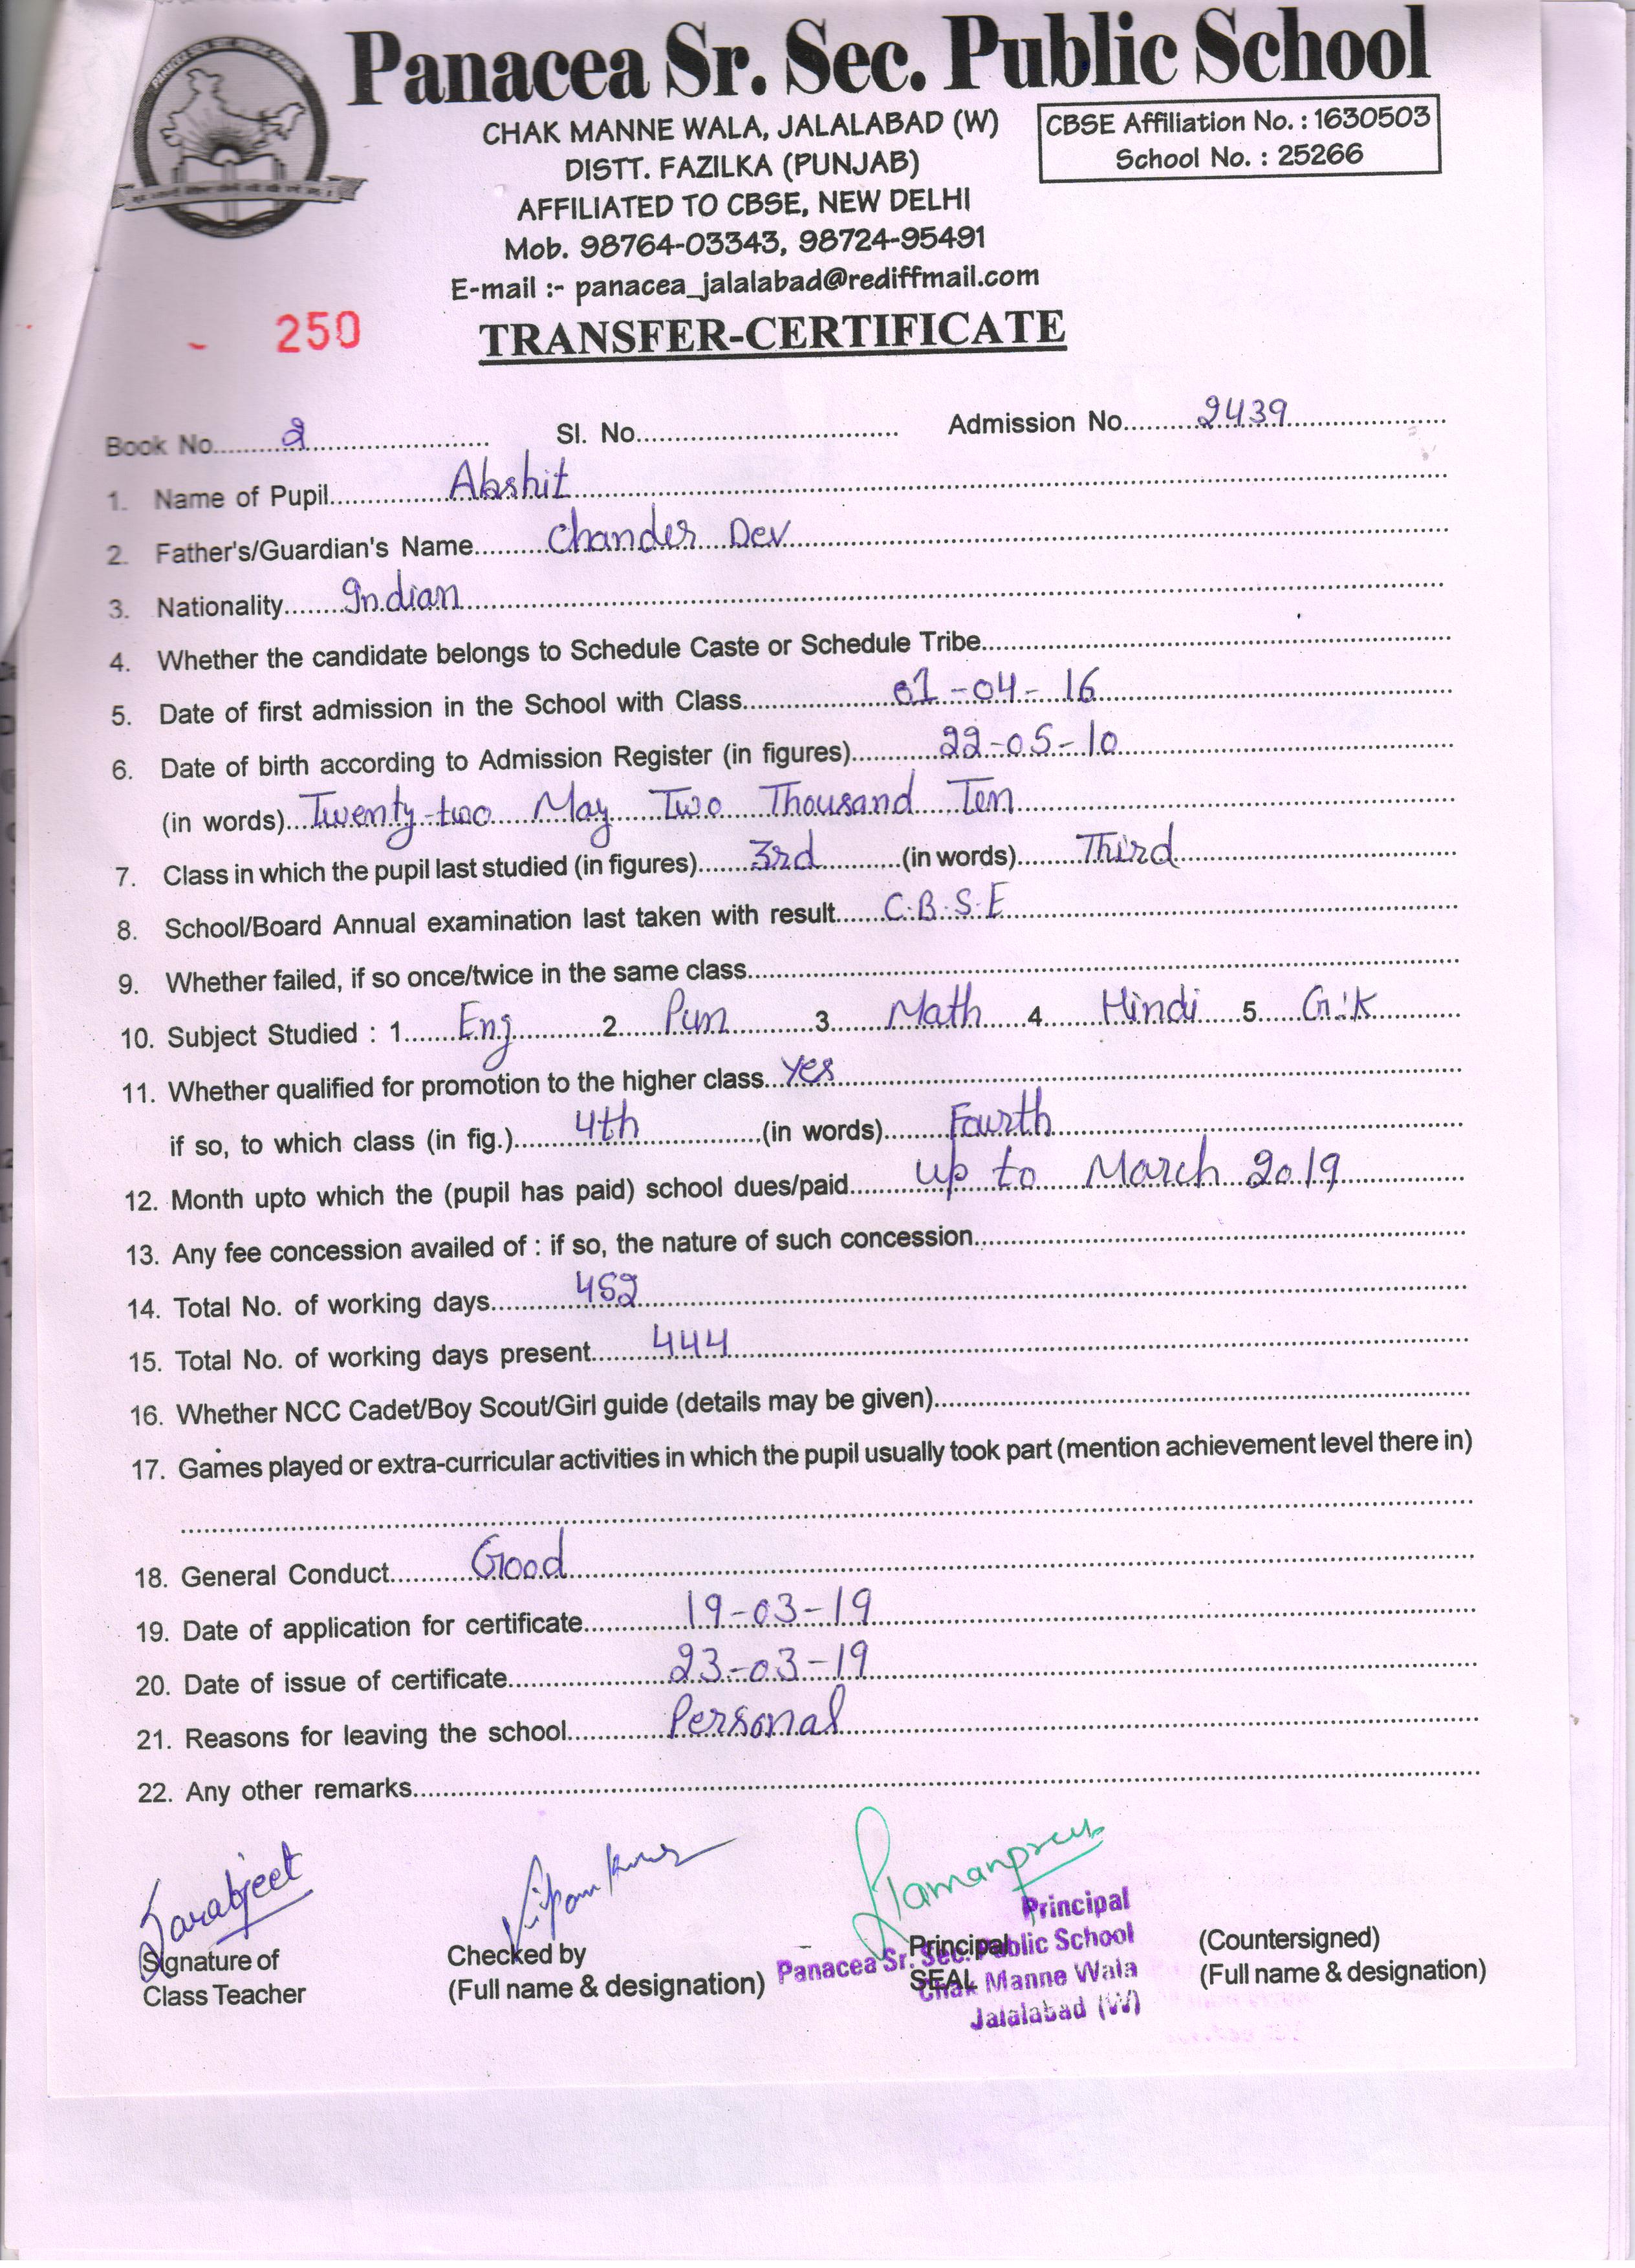 Panacea Sr. Sec. Public School
CHAK MANNE WALA, JALALABAD (W)
DISTT. FAZILKA (PUNJAB)
AFFILIATED TO CBSE, NEW DELHI
Mob. 98764-03343, 98724-95491
E-mail :- panacea_jalalabad@rediffmail.com
CBSE Affiliation No. : 1630503
School No. : 25266
250
TRANSFER-CERTIFICATE
Book No. 2 Sl. No. Admission No. 2439
1. Name of Pupil Akshit
2. Father's/Guardian's Name Chander Dev
3. Nationality Indian
4. Whether the candidate belongs to Schedule Caste or Schedule Tribe
5. Date of first admission in the School with Class 01-04-16
6. Date of birth according to Admission Register (in figures) 22-05-10
(in words) Twenty-two May Two Thousand Ten
7. Class in which the pupil last studied (in figures) 3rd (in words) Third
8. School/Board Annual examination last taken with result C.B.S.E
9. Whether failed, if so once/twice in the same class
10. Subject Studied : 1 Eng 2 Pun 3 Math 4 Hindi 5 G.K
11. Whether qualified for promotion to the higher class Yes
if so, to which class (in fig.) 4th (in words) Fourth
12. Month upto which the (pupil has paid) school dues/paid up to March 2019
13. Any fee concession availed of : if so, the nature of such concession
14. Total No. of working days 452
15. Total No. of working days present 444
16. Whether NCC Cadet/Boy Scout/Girl guide (details may be given)
17. Games played or extra-curricular activities in which the pupil usually took part (mention achievement level there in)
18. General Conduct Good
19. Date of application for certificate 19-03-19
20. Date of issue of certificate 23-03-19
21. Reasons for leaving the school Personal
22. Any other remarks
Sarabjeet
Signature of
Class Teacher
Checked by
(Full name & designation)
Principal
SEAL
Principal
Panacea Sr. Sec. Public School
Chak Manne Wala
Jalalabad (W)
(Countersigned)
(Full name & designation)